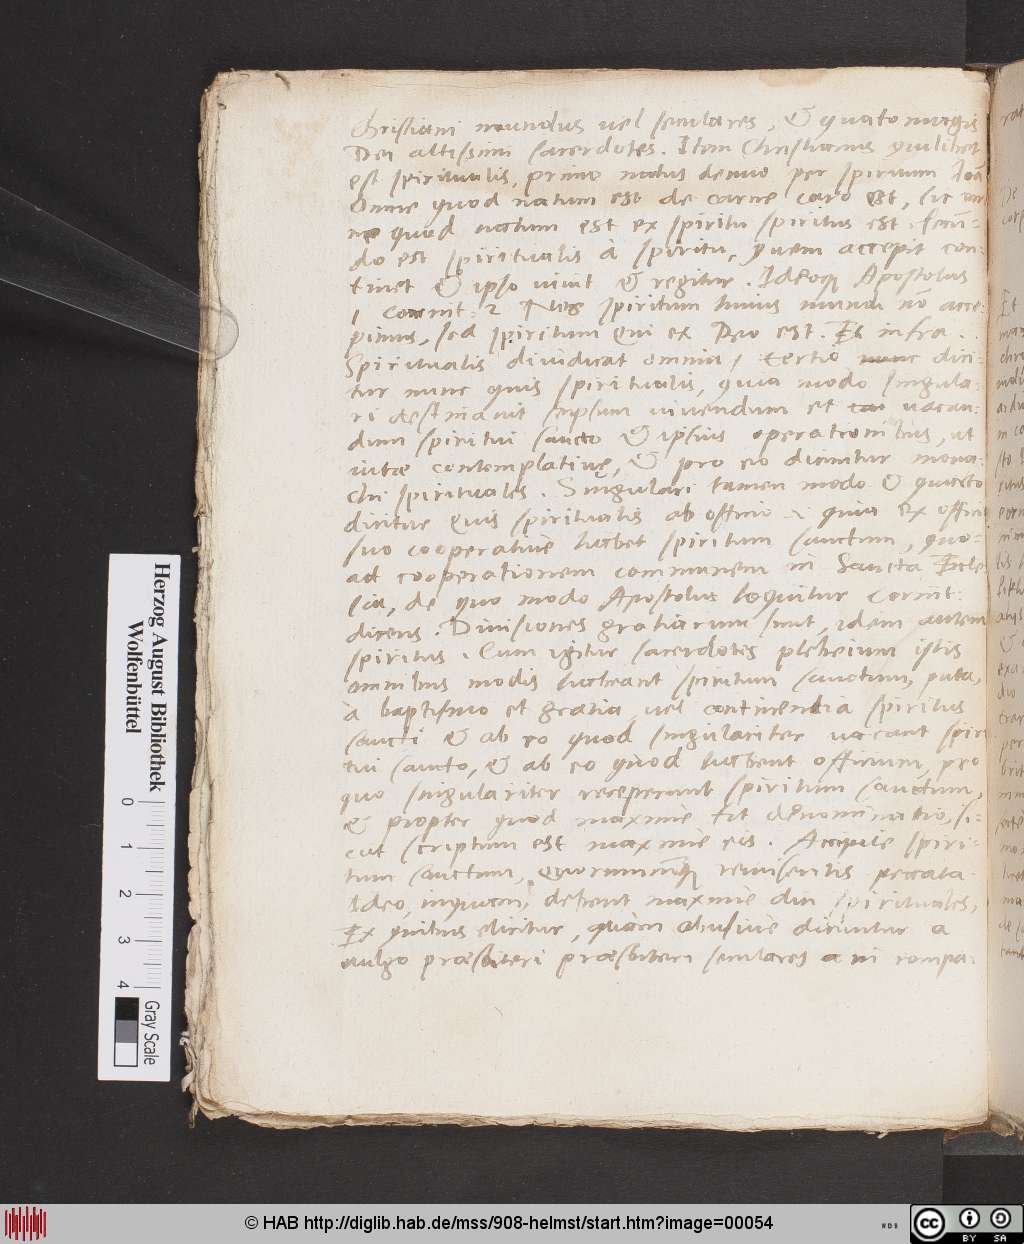 Christiani mundus vel seculares, & quato magis
Dei altissimi sacerdotes. Item Christianus quilibet
est spiritualis, primo natus denuo per spiritum Ioā
Omne quod natum est de carne caro est, sic om
ne quod natum est ex spiritu spiritus est. secun-
do est spiritualis à spiritu, quem accepit con-
tinet & ipso vivit & regitur. Ideoq Apostolus
1 Corint: 2 Nos spiritum huius mundi nō acce-
pimus, sed spiritum qui ex Deo est. Et infra.
Spiritualis diiudicat omnia, tertio nunc dici-
tur nunc quis spiritualis, quia modo singula-
ri destinavit seipsum vivendum et vacan-
dum spiritui sancto & ipsius operationibus, ut
vitæ contemplativę, & pro eo dicuntur mona-
chi spirituales. Singulari tamen modo & quarto
dicitur quis spiritualis ab officio quia ex officio
suo cooperative habet spiritum sanctum, quo-
ad cooperationem communem in Sancta Eccle
sia, de quo modo Apostolus loquitur Corint:
dicens. Divisiones gratiarum sunt, idem autem
spiritus. Cum igitur sacerdotes plebeium istis
omnibus modis habeant spiritum sanctum, puta,
à baptismo et gratia, vel continentia spiritus
sancti & ab eo quod singulariter vacant spiri
tui sancto, & ab eo quod habent officium, pro
quo singulariter receperunt spiritum sanctum,
& propter quod maxime fit denominatio, si-
cut scriptum est maxime eis. Accipite spiri-
tum sanctum, quorumcumq remiseritis peccata.
Ideo, inquam, debent maxime dici spirituales,
Ex quibus elicitur, quàm abusive dicuntur a
vulgo præsbiteri præsbiteri seculares a in compa-
Herzog August Bibliothek
Wolfenbüttel
0 1 2 3 4
Gray Scale
© HAB http://diglib.hab.de/mss/908-helmst/start.htm?image=00054
WDB
cc BY SA